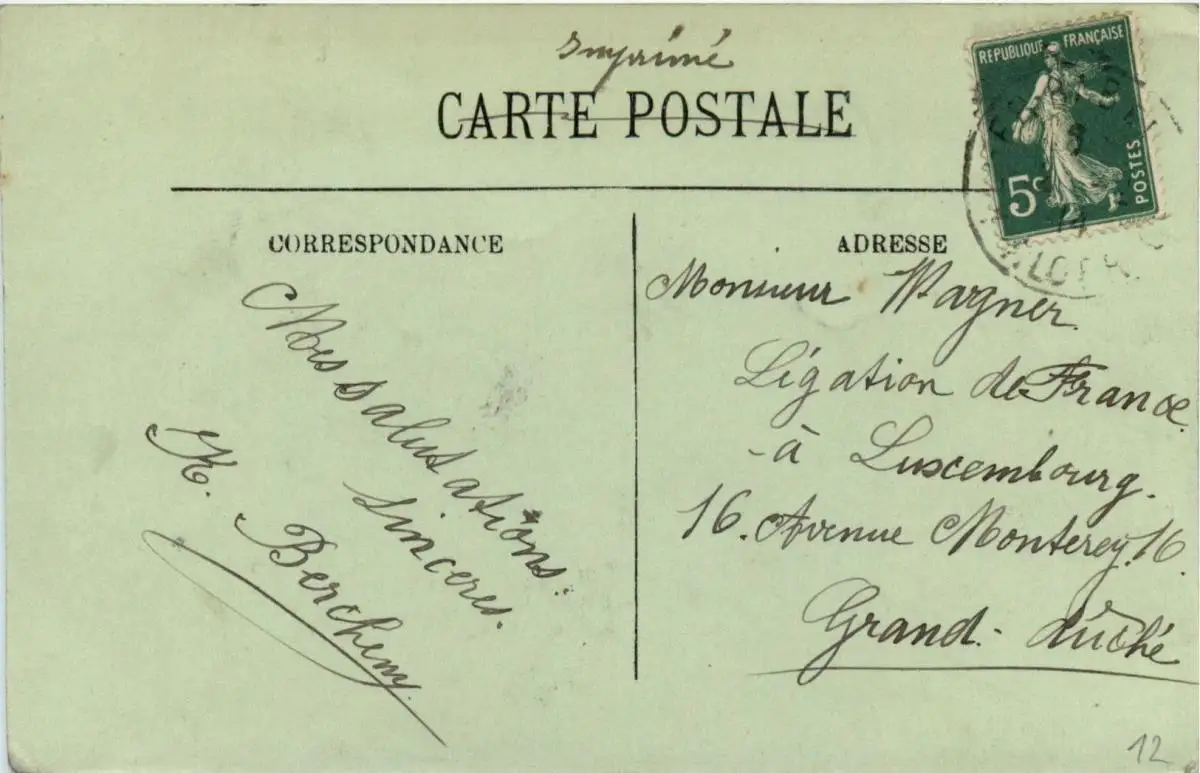 Imprimé
CARTE POSTALE
REPUBLIQUE FRANÇAISE
5c
POSTES
CORRESPONDANCE
Mes salutations
sinceres.
K. Berchem
ADRESSE
Monsieur Wagner.
Ligation de France
à Luxembourg.
16. Avenue Monterey, 16
Grand-duché
12